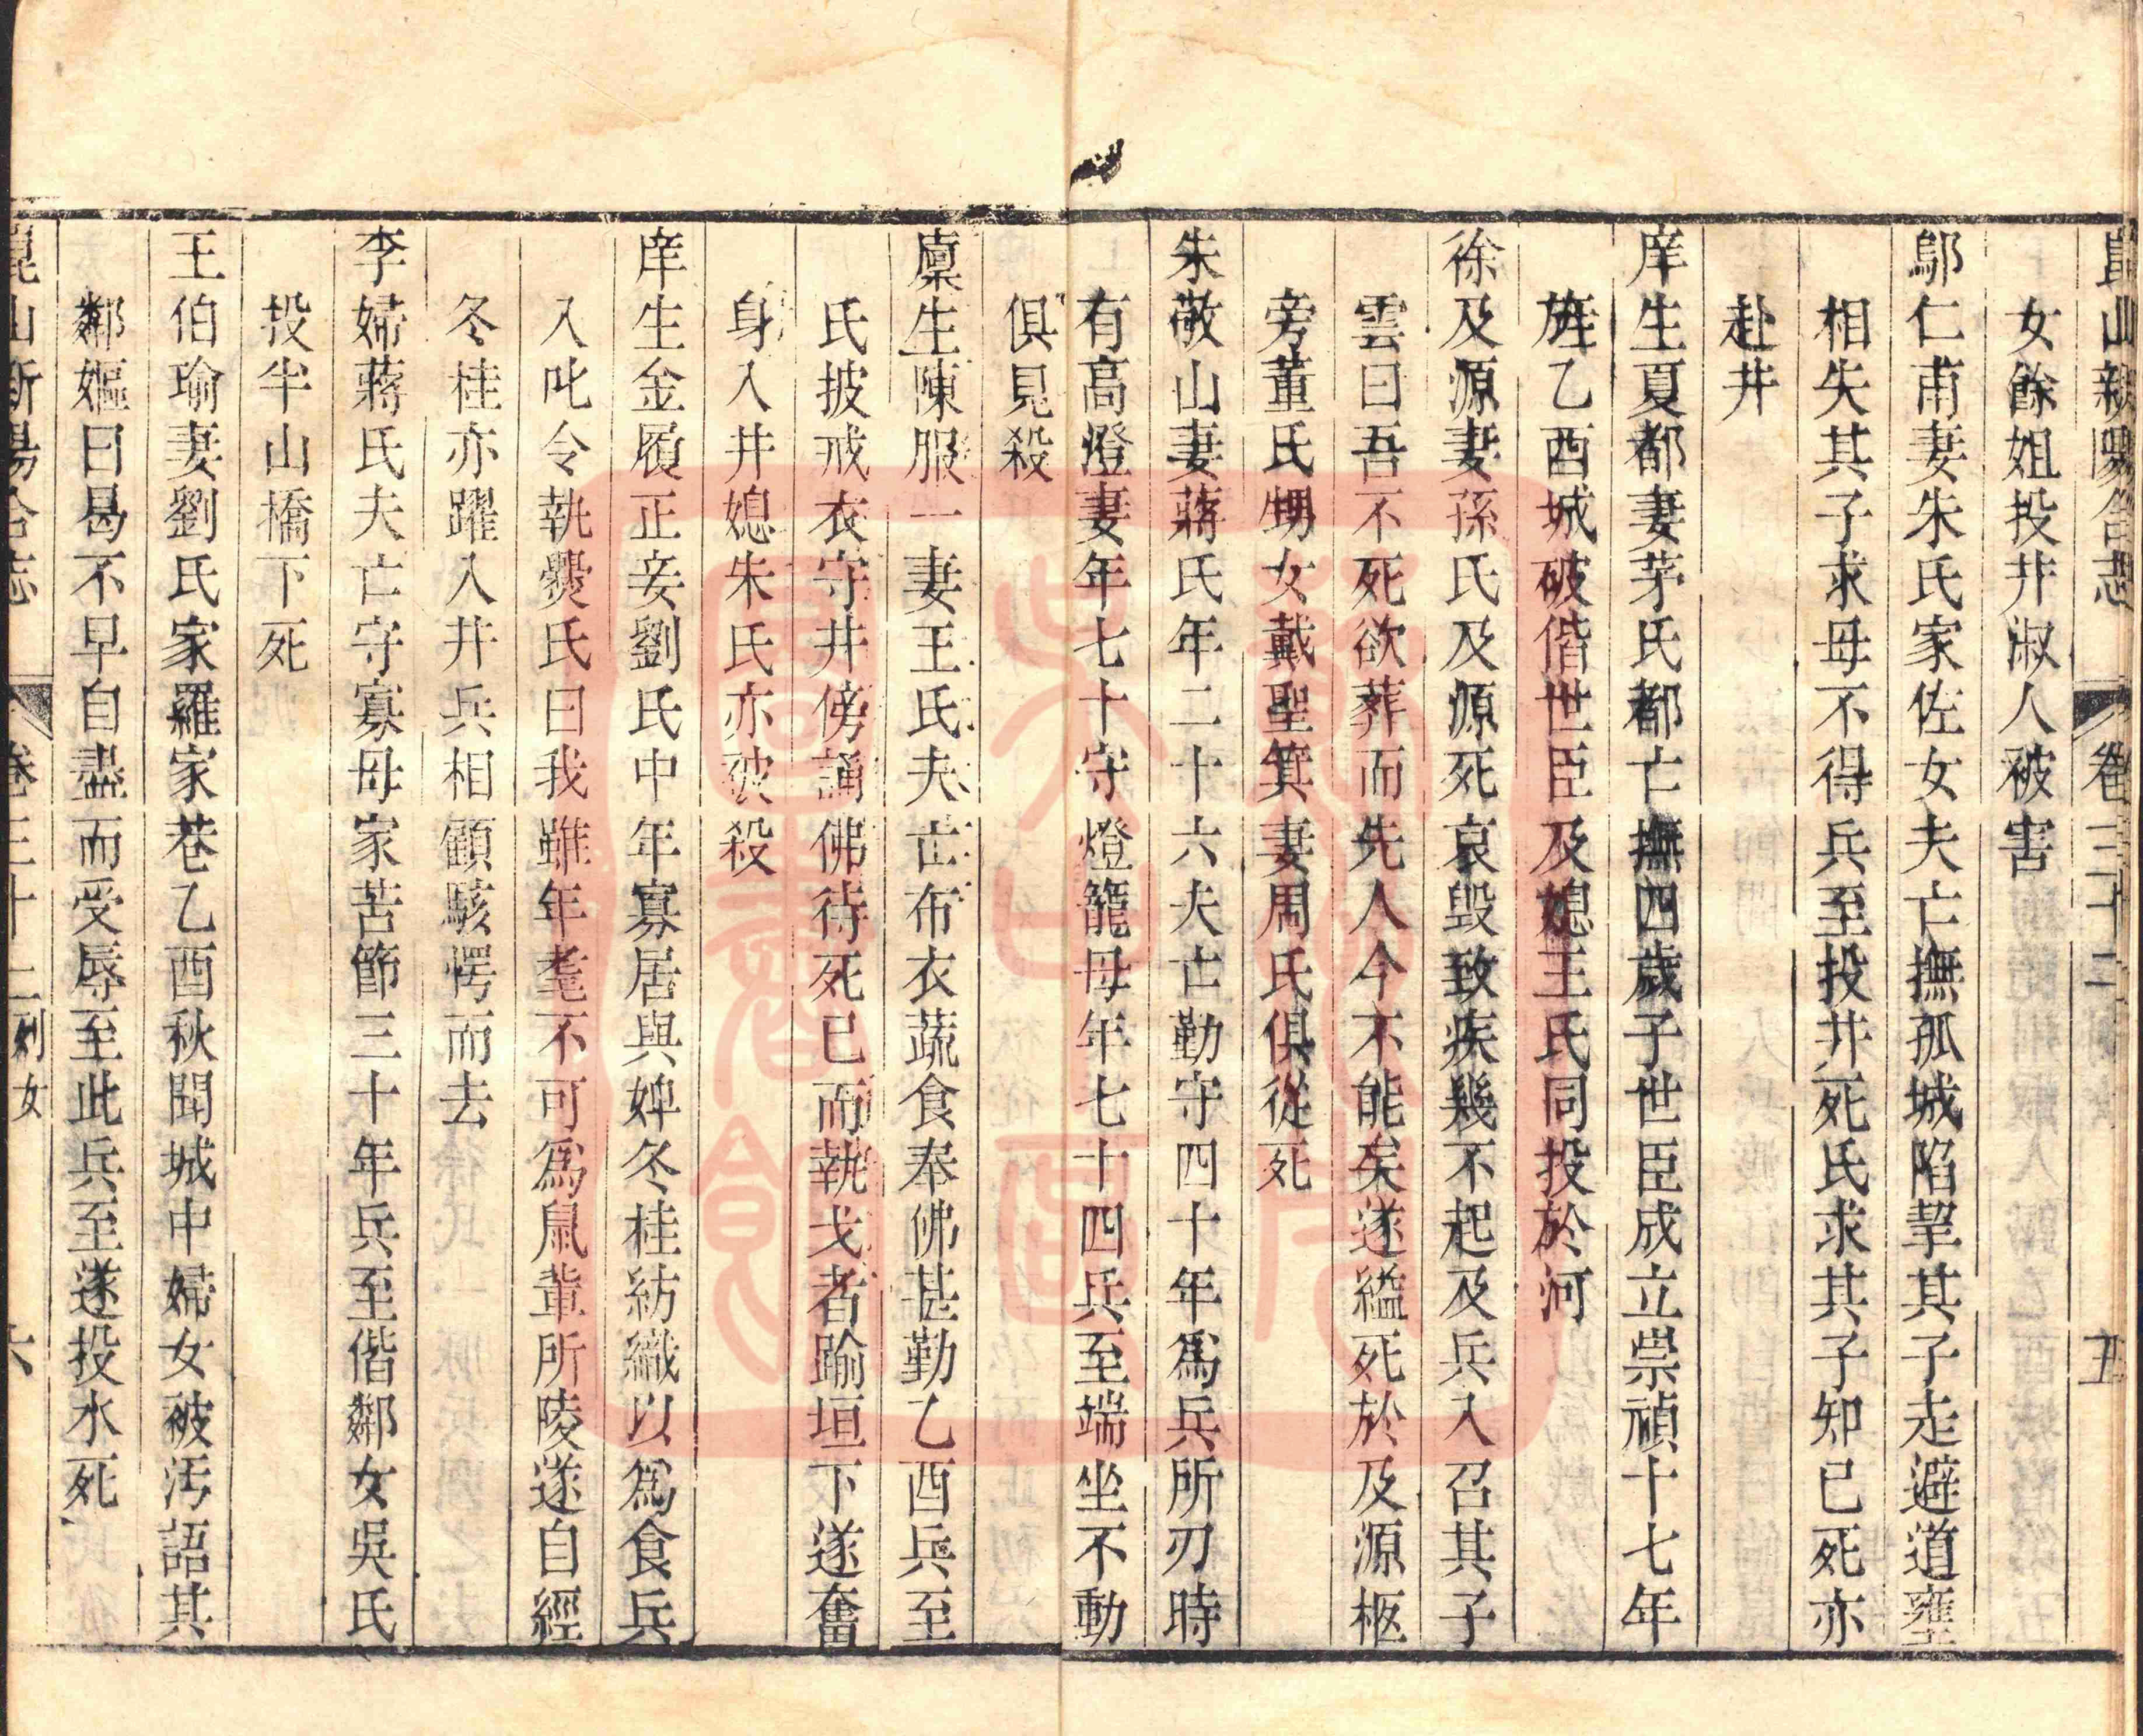 崑山新陽合志 卷三十二 五
女餘姐投井淑人被害
鄔仁甫妻朱氏家佐女夫亡撫孤城陷挈其子走避道壅
相失其子求母不得兵至投井死氏求其子知已死亦
赴井
庠生夏都妻茅氏都亡撫四歲子世臣成立崇禎十七年
旌乙酉城破偕世臣及媳王氏同投於河
徐及源妻孫氏及源死哀毀致疾幾不起及兵入召其子
雲曰吾不死欲葬而先人今不能矣遂縊死於及源柩
旁董氏甥女戴聖箕妻周氏俱從死
朱敬山妻蔣氏年二十六夫亡勤守四十年爲兵所刃時
有高澄妻年七十守燈籠母年七十四兵至端坐不動
俱見殺
廩生陳服一妻王氏夫亡布衣蔬食奉佛甚勤乙酉兵至
氏披戒衣守井傍誦佛待死已而執戈者踰垣下遂奮
身入井媳朱氏亦被殺
庠生金履正妾劉氏中年寡居與婢冬桂紡織以爲食兵
入叱令執爨氏曰我雖年耄不可爲鼠輩所陵遂自經
冬桂亦躍入井兵相顧駭愕而去
李婦蔣氏夫亡守寡母家苦節三十年兵至偕鄰女吳氏
投半山橋下死
王伯瑜妻劉氏家羅家巷乙酉秋聞城中婦女被污語其
鄰嫗曰曷不早自盡而受辱至此兵至遂投水死
崑山新陽合志 卷三十二列女 六